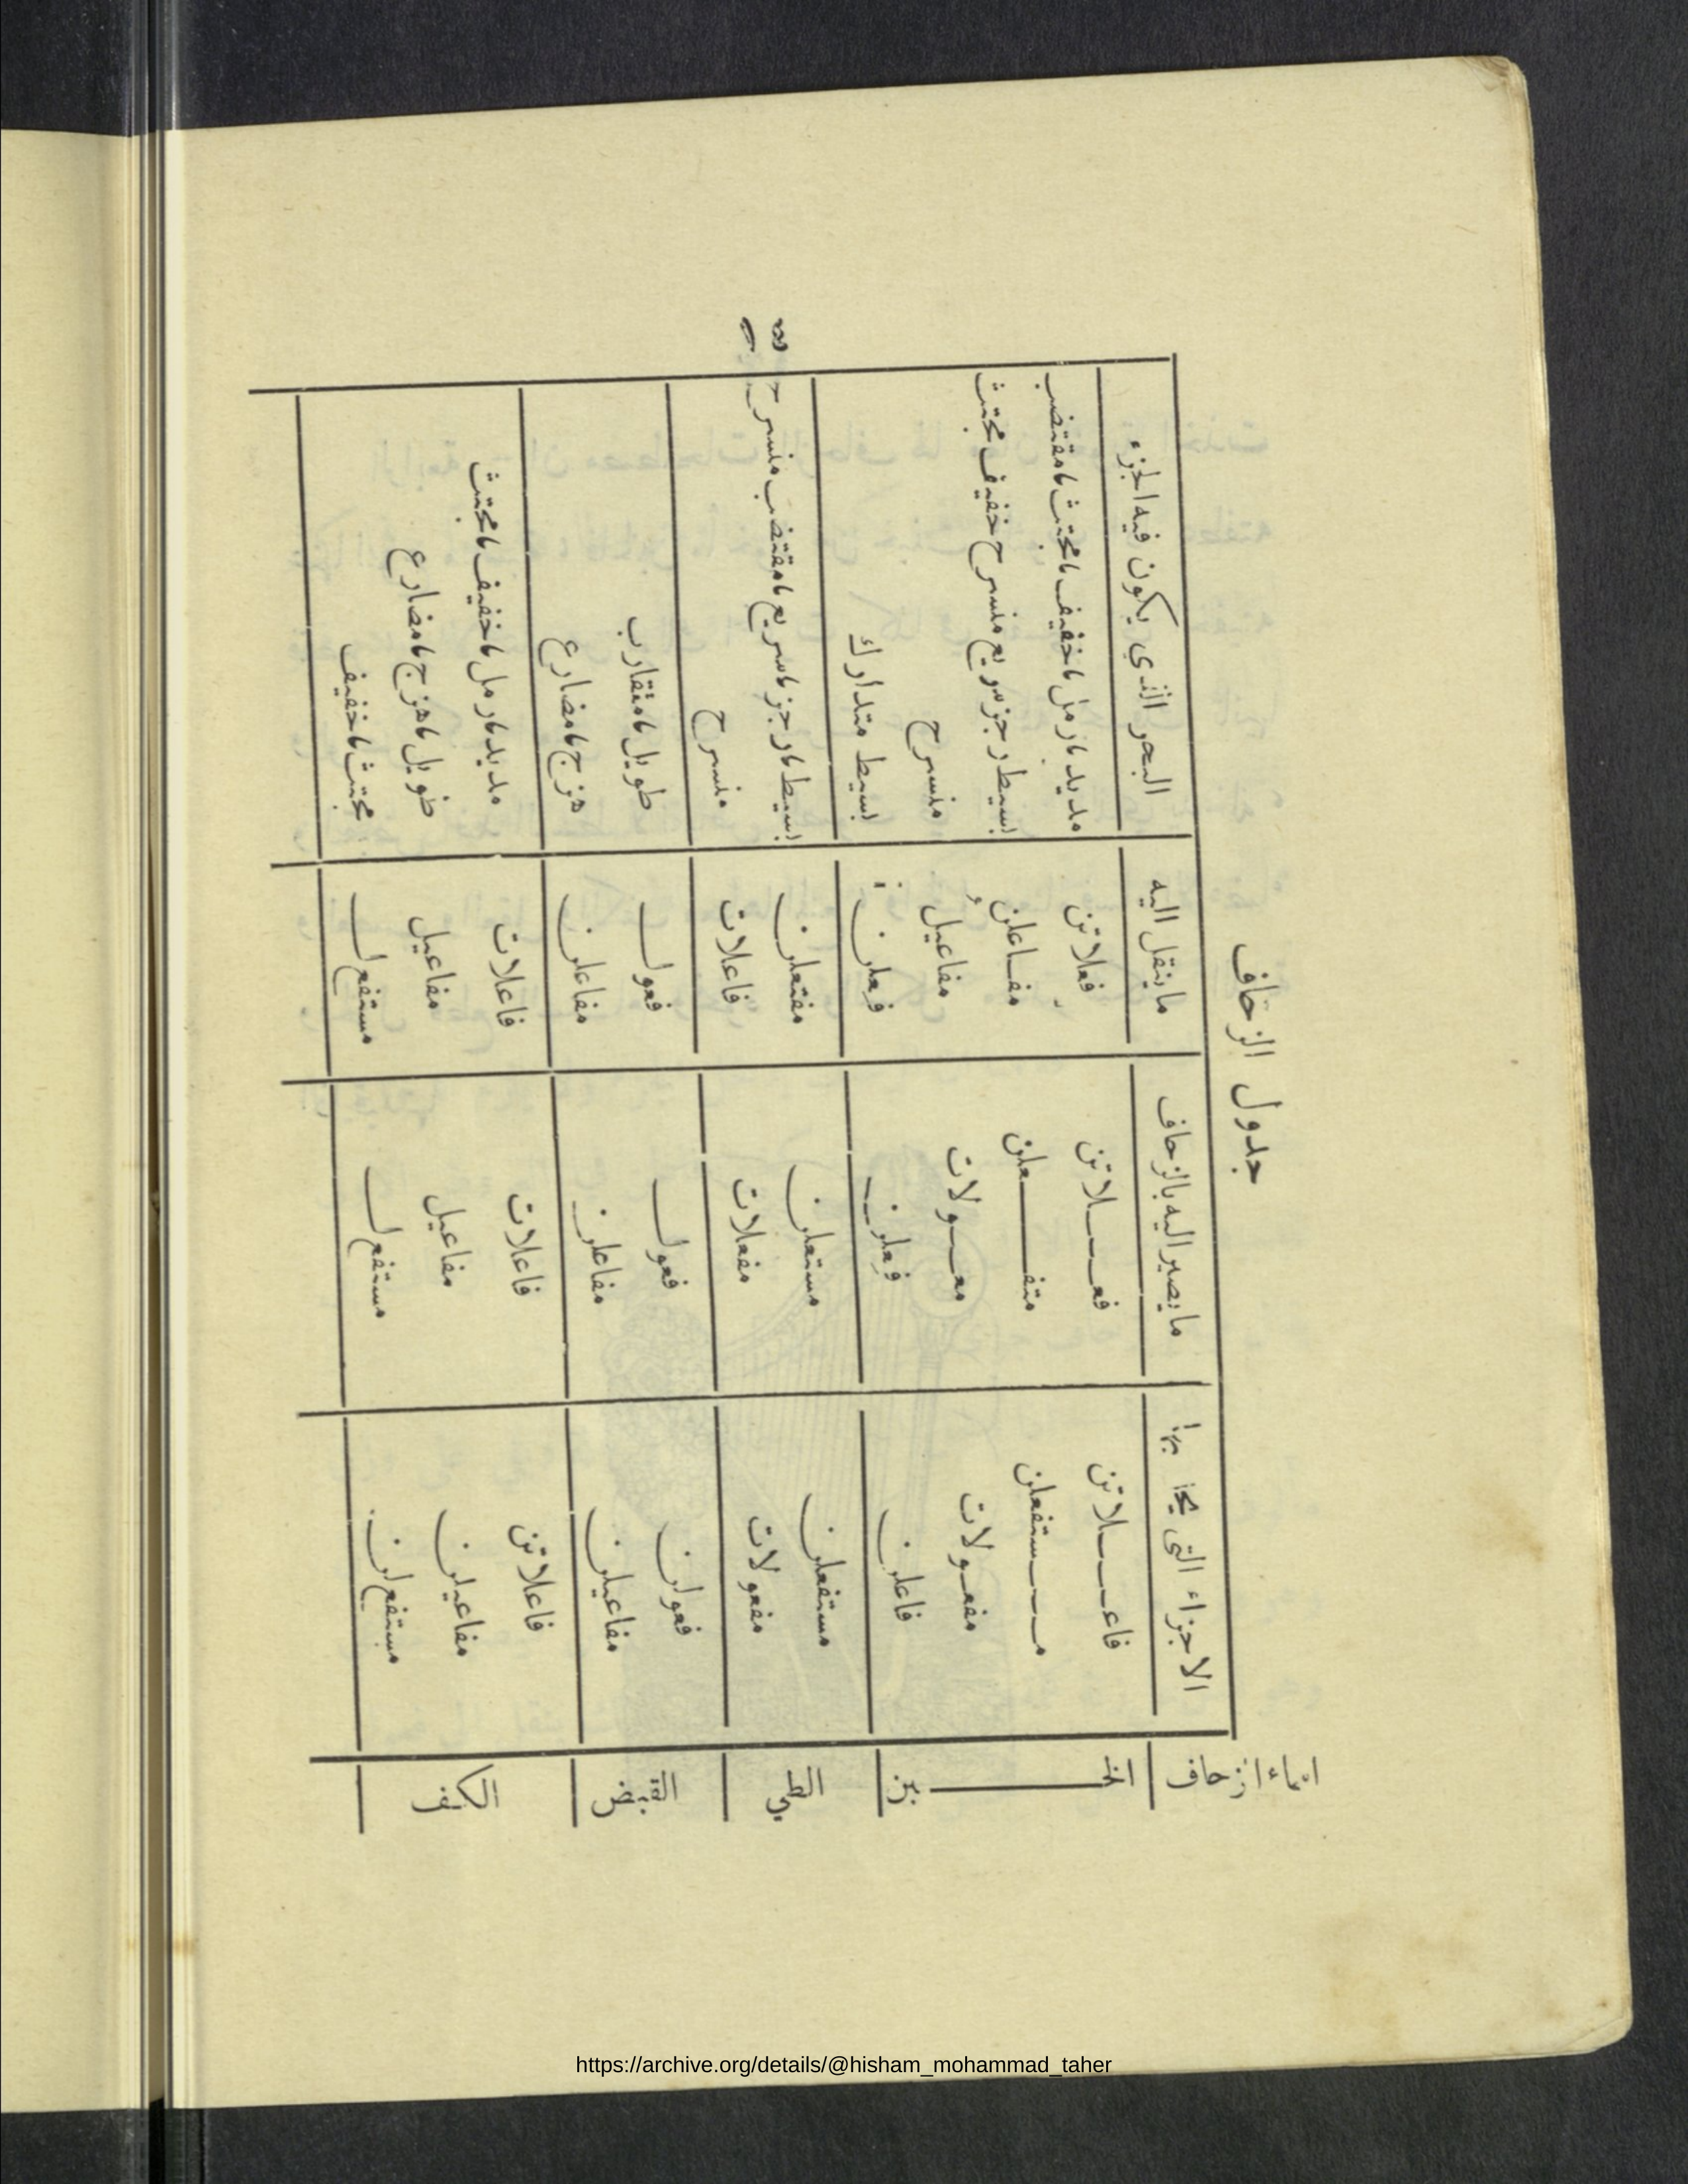 جدول الزحاف
اسماء الزحاف | الاجزاء التي يجا بها | ما يصير اليه بالزحاف | ما ينقل اليه | البحر الذي يكون فيه الجزء
الخبن | فاعلاتن | فعلاتن | فعلاتن | مديد، رمل، خفيف، مجتث، مقتضب
مستفعلن | متفعلن | مفاعلن | بسيط رجز سريع منسرح خفيف مجتث
مفعولات | معولات | مفاعيل | منسرح
فاعلن | فعلن | فعلن | بسيط متدارك
الطي | مستفعلن | مستعلن | مفتعلن | بسيط، رجز، سريع، مقتضب منسرح
مفعولات | مفعلات | فاعلات | منسرح
القبض | فعولن | فعول | فعول | طويل، متقارب
مفاعيلن | مفاعلن | مفاعلن | هزج، مضارع
الكف | فاعلاتن | فاعلات | فاعلات | مديد، رمل، خفيف، مجتث
مفاعيلن | مفاعيل | مفاعيل | طويل، هزج، مضارع
مستفع لن | مستفع ل | مستفع ل | مجتث، خفيف
https://archive.org/details/@hisham_mohammad_taher